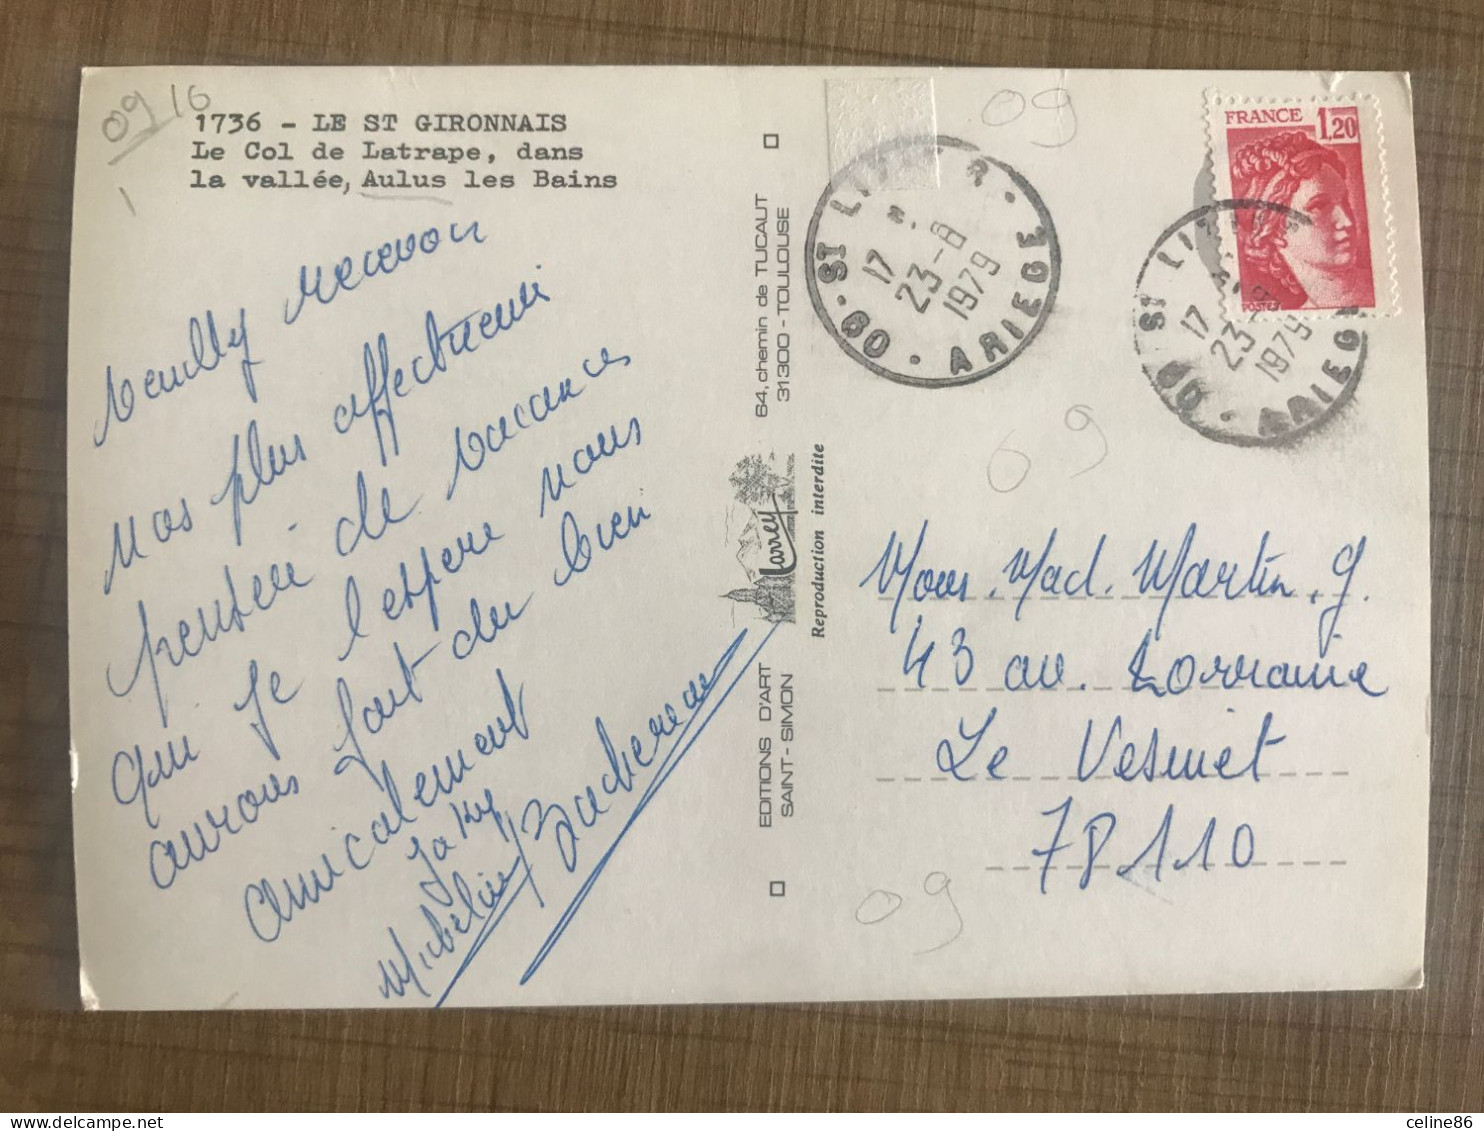 09 16
1736 - LE ST GIRONNAIS
Le Col de Latrape, dans
la vallée, Aulus les Bains
Veuilly recevoir
nos plus affectueuse
pensée de vacances
qui je l'espere nous
aurons fait du bien
amicalement
Jaky
Micheline
64, chemin de TUCAUT
31300 - TOULOUSE
Larrey
Reproduction interdite
EDITIONS D'ART
SAINT - SIMON
09
ST LIZIER
17 H.
23-8
1979
09 · ARIEGE
FRANCE 1,20
POSTES
ST LIZIER
17
23-
1979
ARIEGE
09
Mons. Mad. Martin. G.
43 av. Lorraine
Le Vesinet
78110
09
celine86